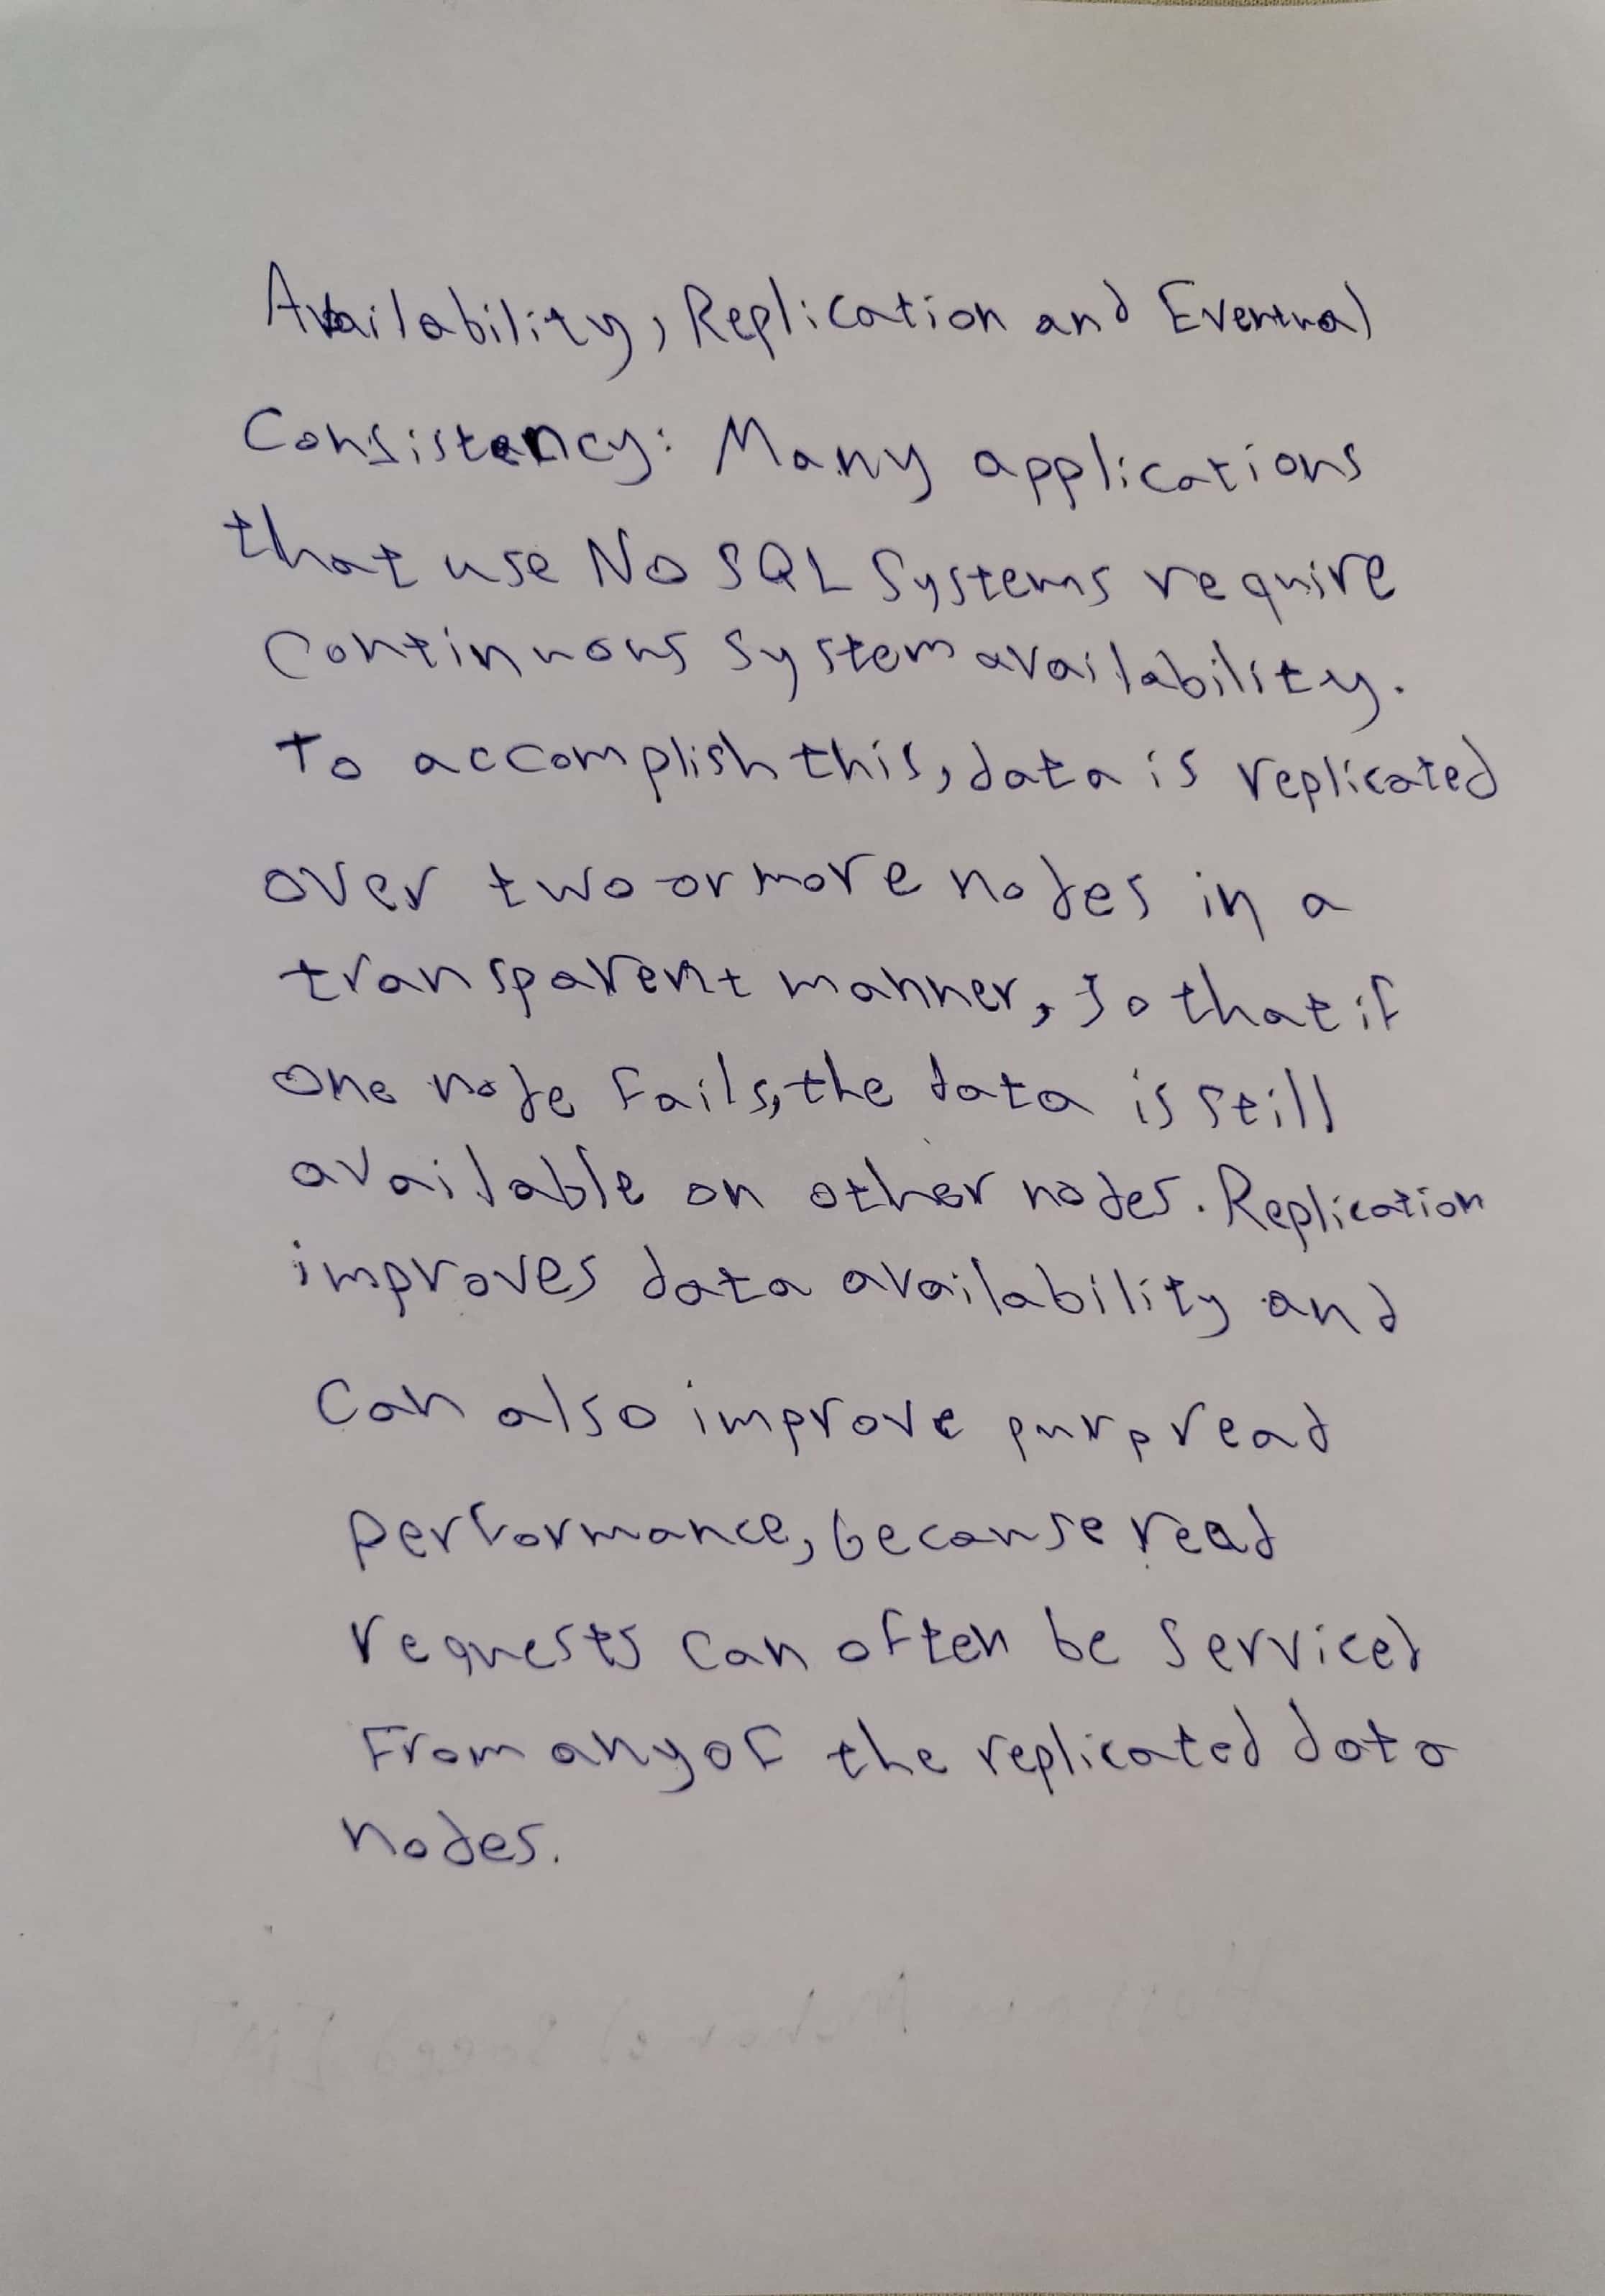 Availability, Replication and Eventual
Consistency: Many applications
that use No SQL Systems require
Continuous System availability.
To accomplish this, data is replicated
over two or more nodes in a
transparent manner, so that if
One node fails, the data is still
available on other nodes. Replication
improves data availability and
Can also improve purp read
performance, because read
requests can often be serviced
From any of the replicated data
nodes.